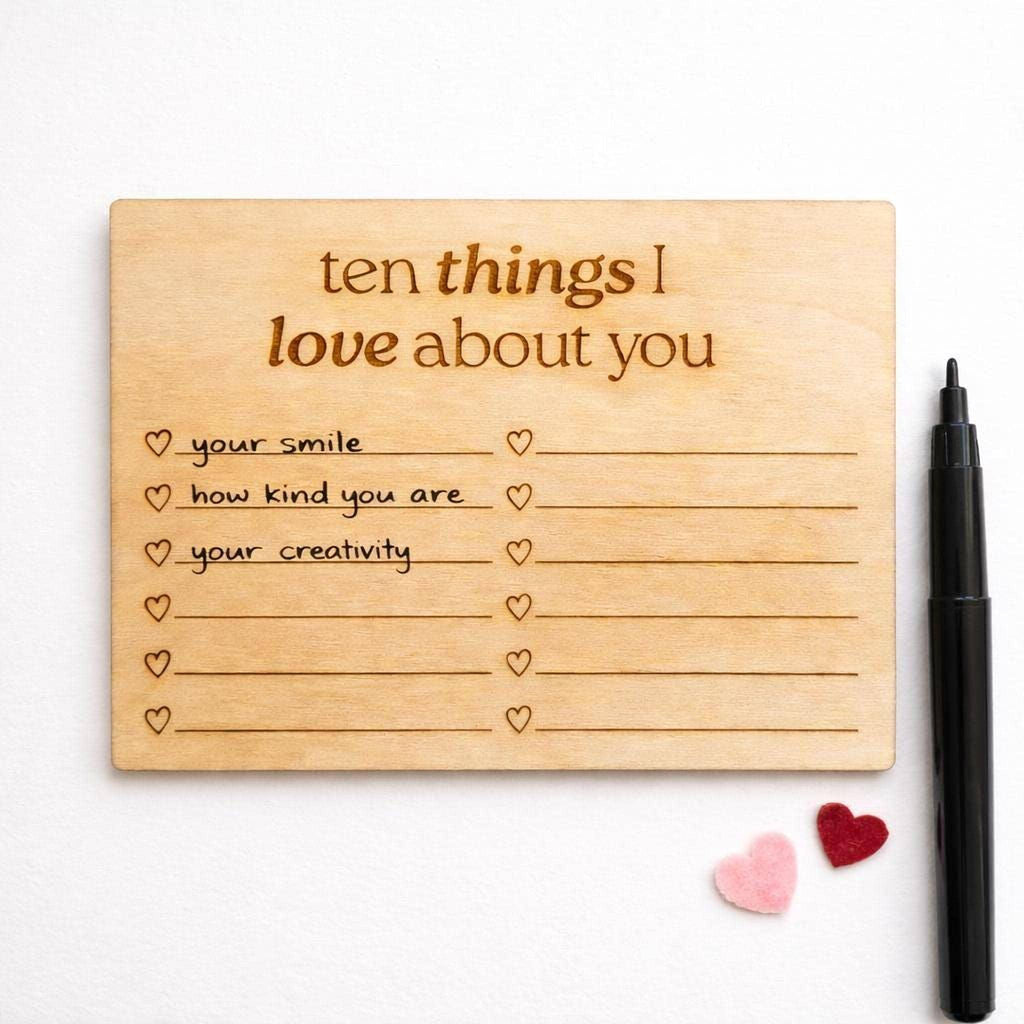 ten things I
love about you
your smile
how kind you are
your creativity